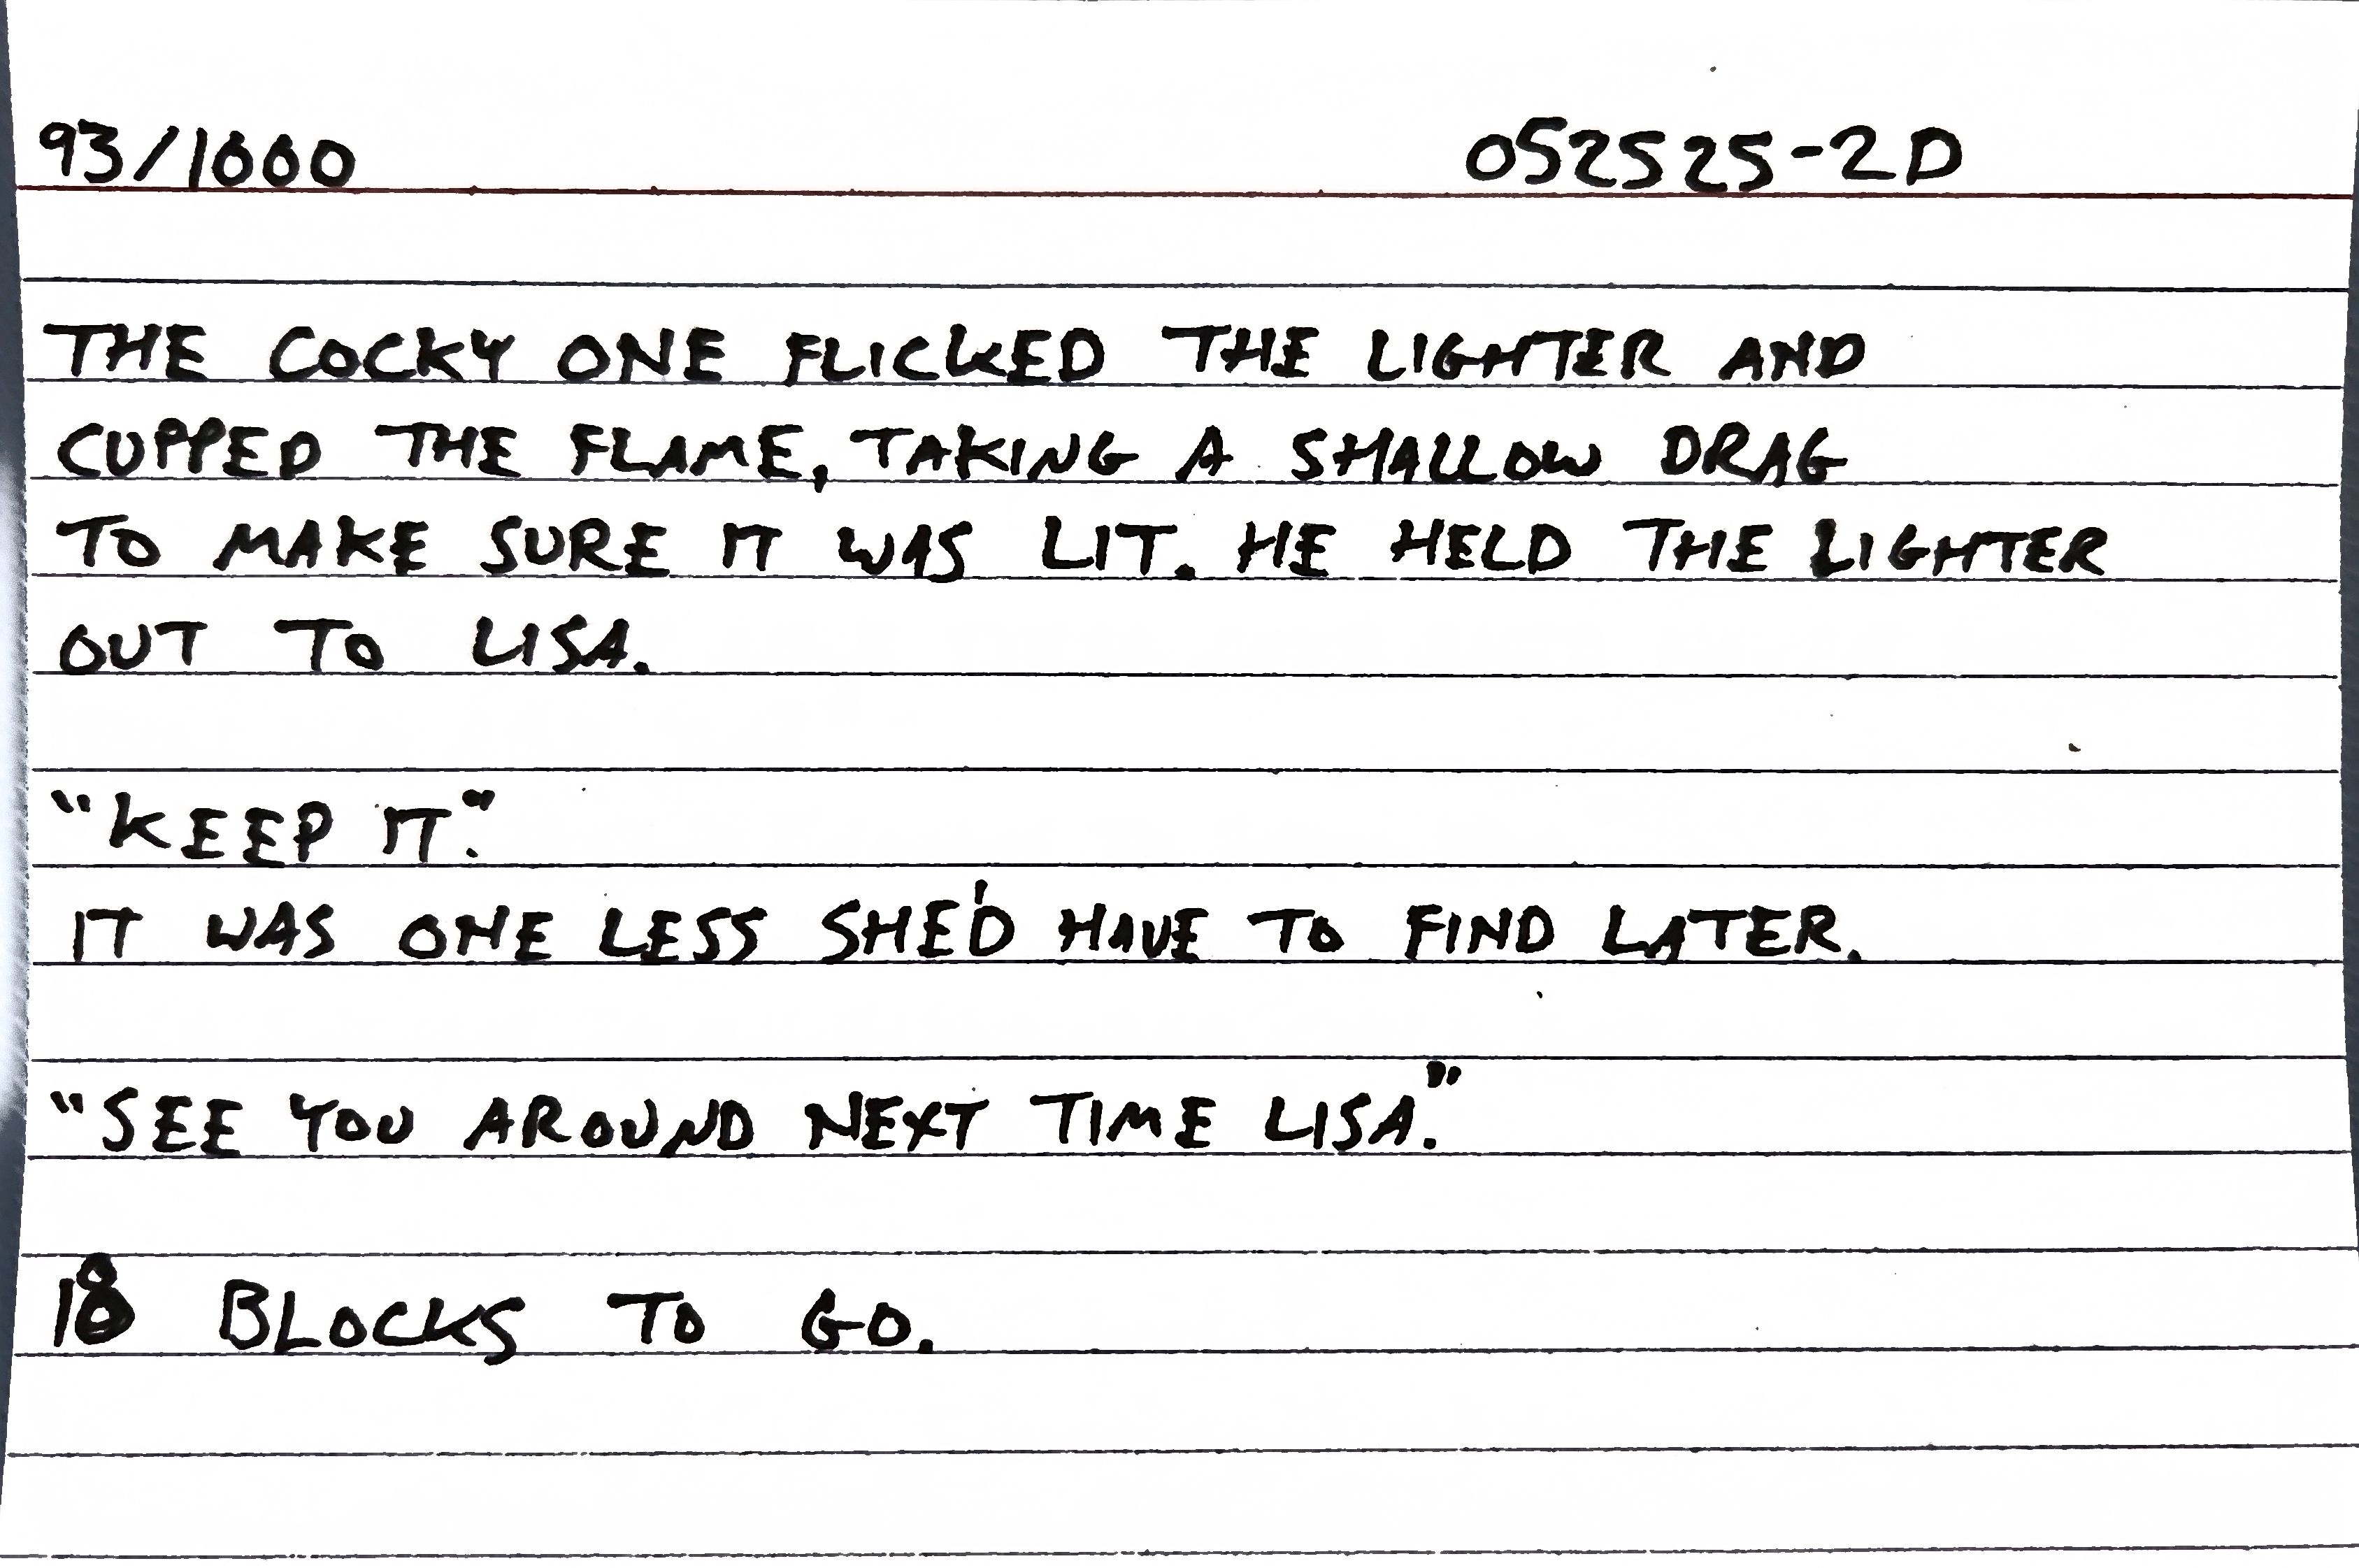 93/1000 052525-2D
THE COCKY ONE FLICKED THE LIGHTER AND
CUPPED THE FLAME, TAKING A SHALLOW DRAG
TO MAKE SURE IT WAS LIT. HE HELD THE LIGHTER
OUT TO LISA.
"KEEP IT."
IT WAS ONE LESS SHE'D HAVE TO FIND LATER.
"SEE YOU AROUND NEXT TIME LISA."
18 BLOCKS TO GO.